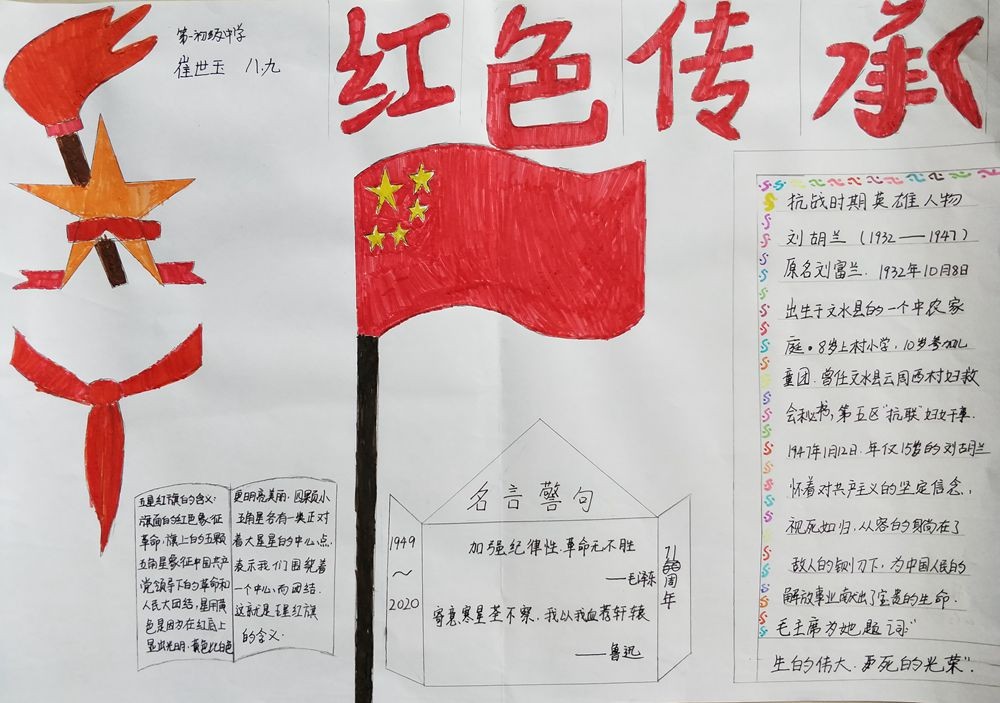 第一初级中学
崔世玉 八.九
红色传承
抗战时期英雄人物
刘胡兰（1932——1947）
原名刘富兰.1932年10月8日
出生于文水县的一个中农家
庭。8岁上村小学,10岁参加儿
童团.曾任文水县云周西村妇救
会秘书,第五区"抗联"妇女干事.
1947年1月12日.年仅15岁的刘胡兰
怀着对共产主义的坚定信念,
视死如归,从容的躺在了
敌人的铡刀下,为中国人民的
解放事业献出了宝贵的生命.
毛主席为她题词:"
生的伟大.死的光荣".
五星红旗的含义:
旗面的红色象征
革命,旗上的五颗
五角星象征中国共产
党领导下的革命和
人民大团结,星用黄
色是因为在红底上
显出光明,黄色比白色
更明亮美丽,四颗小
五角星各有一尖正对
着大星星的中心点,
表示我们围绕着
一个中心,而团结.
这就是五星红旗
的含义.
名言警句
1949
~
2020
加强纪律性.革命无不胜
——毛泽东
寄意寒星荃不察,我以我血荐轩辕
——鲁迅
71周年